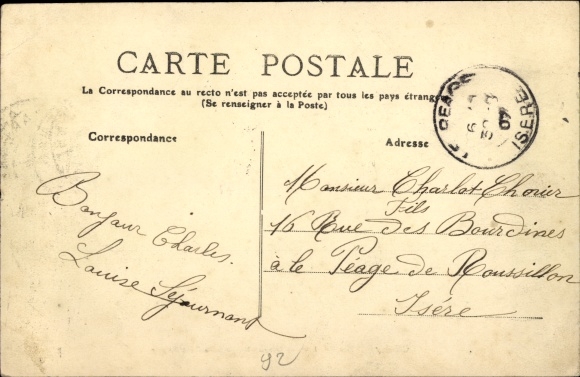 CARTE POSTALE
La Correspondance au recto n'est pas acceptée par tous les pays étrang
(Se renseigner à la Poste)
Correspondance
Adresse
LE PEAGE
ISERE
07
Bonjour Charles.
Louise Séjournant
Monsieur Charlot Thorier
Fils
16 Rue des Bourdines
à le Péage de Roussillon
Isére
92